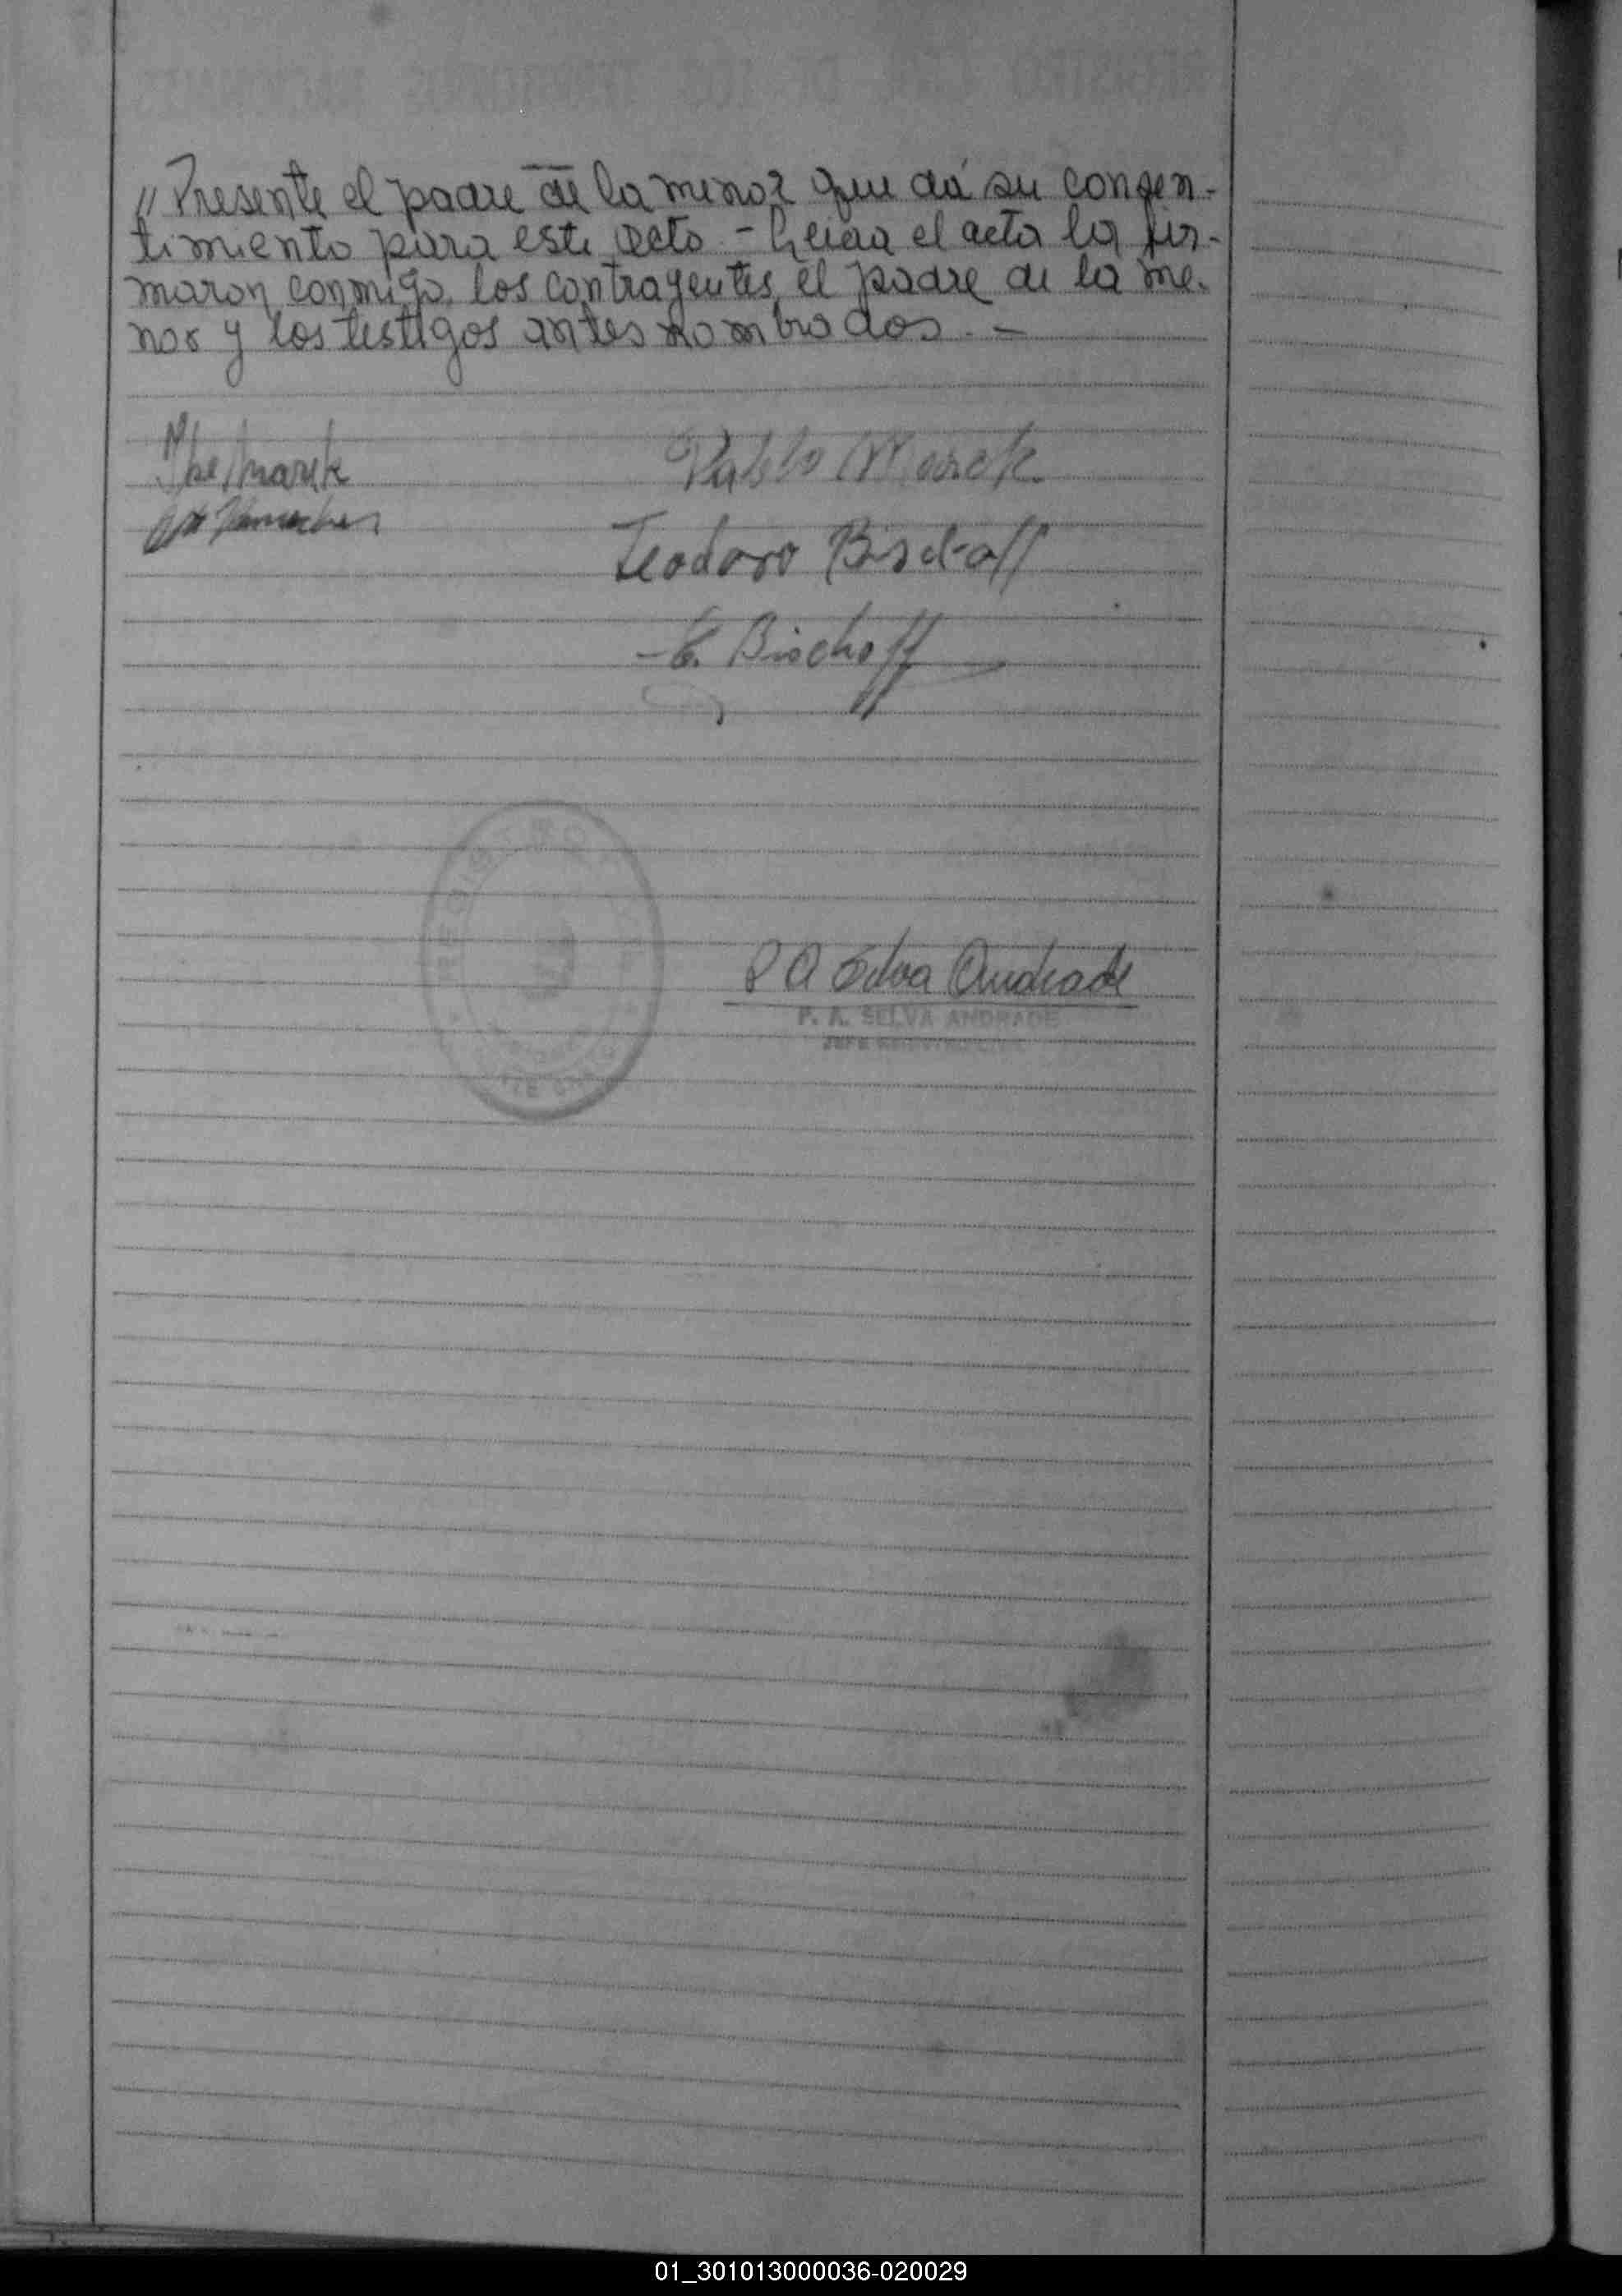 // Presente el padre de la menor que dá su consen-
timiento para este acto. - Leida el acta la fir-
maron conmigo, los contrayentes, el padre de la me-
nor y los testigos antes nombrados. -
Pablo Marek
Teodoro Bischoff
E. Bischoff
P A Selva Andrade
P. A. SELVA ANDRADE
JEFE REGISTRO CIVIL
REGISTRO
01_301013000036-020029